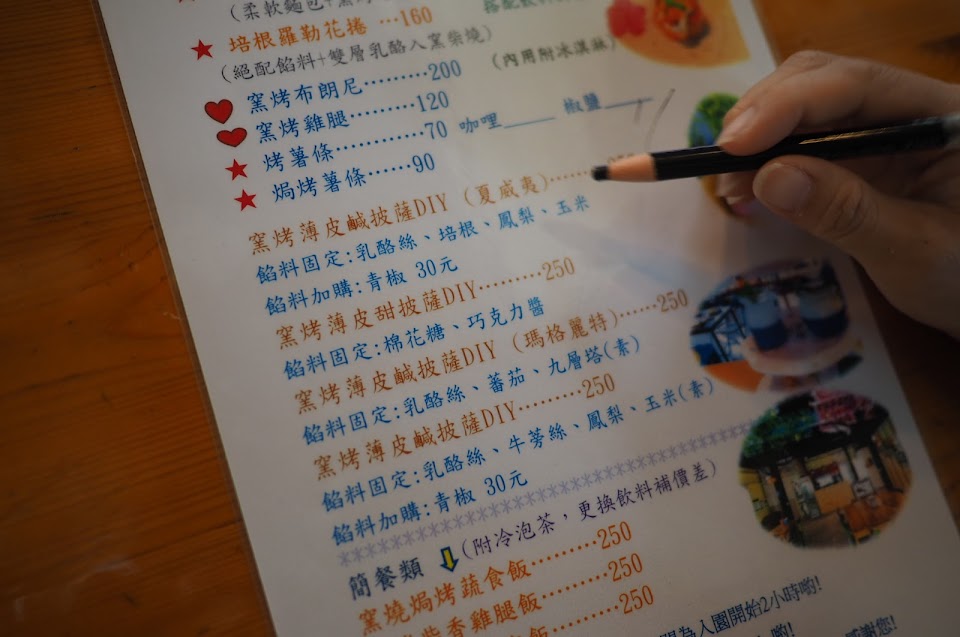 (柔軟麵包+
搭配飲料
培根羅勒花捲 …160
(絕配餡料+雙層乳酪入窯柴燒)
(內用附冰淇淋)
窯烤布朗尼………200
窯烤雞腿………120
烤薯條………70 咖哩____ 椒鹽____
焗烤薯條……90
窯烤薄皮鹹披薩DIY (夏威夷)……
餡料固定:乳酪絲、培根、鳳梨、玉米
餡料加購:青椒 30元
窯烤薄皮甜披薩DIY………250
餡料固定:棉花糖、巧克力醬
窯烤薄皮鹹披薩DIY (瑪格麗特)……250
餡料固定:乳酪絲、蕃茄、九層塔(素)
窯烤薄皮鹹披薩DIY………250
餡料固定:乳酪絲、牛蒡絲、鳳梨、玉米(素)
餡料加購:青椒 30元
簡餐類 (附冷泡茶，更換飲料補價差)
窯燒焗烤蔬食飯………250
柴香雞腿飯………250
飯………250
為入園開始2小時喲!
喲!
感謝您!